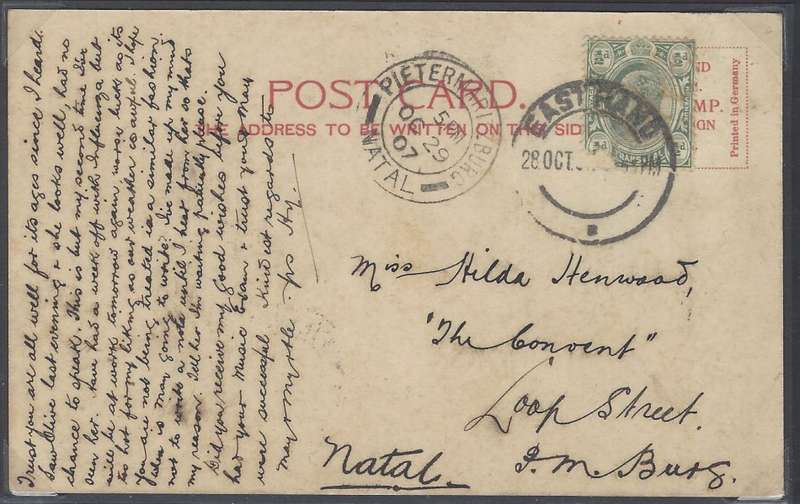 Trust you are all well for its ages since I heard.
Saw Olive last evening & she looks well, had no
chance to speak. This is but my second time I've
seen her. Have had a week off with Influenza but
will be at work tomorrow again, worse luck as its
too hot for my liking as our weather is awful. I hope
you are not being treated in a similar fashion.
When is May going to write? I've made up my mind
not to write a note until I hear from her so thats
my reason. Tell her I'm waiting patiently please.
Did you receive my good wishes before you
had your Music Exam & trust you & May
were successful Kind est regards to
May & Myrtle Yrs Hy.
POST CARD.
THE ADDRESS TO BE WRITTEN ON THIS SID
PIETERMARITZBURG
5 PM
OC 29
07
NATAL
EAST RAND
28 OCT. 07
½d ½d
ND
MP.
IGN
Printed in Germany
Miss Hilda Henwood,
"The Convent"
Loop Street.
P. M. Burg.
Natal.